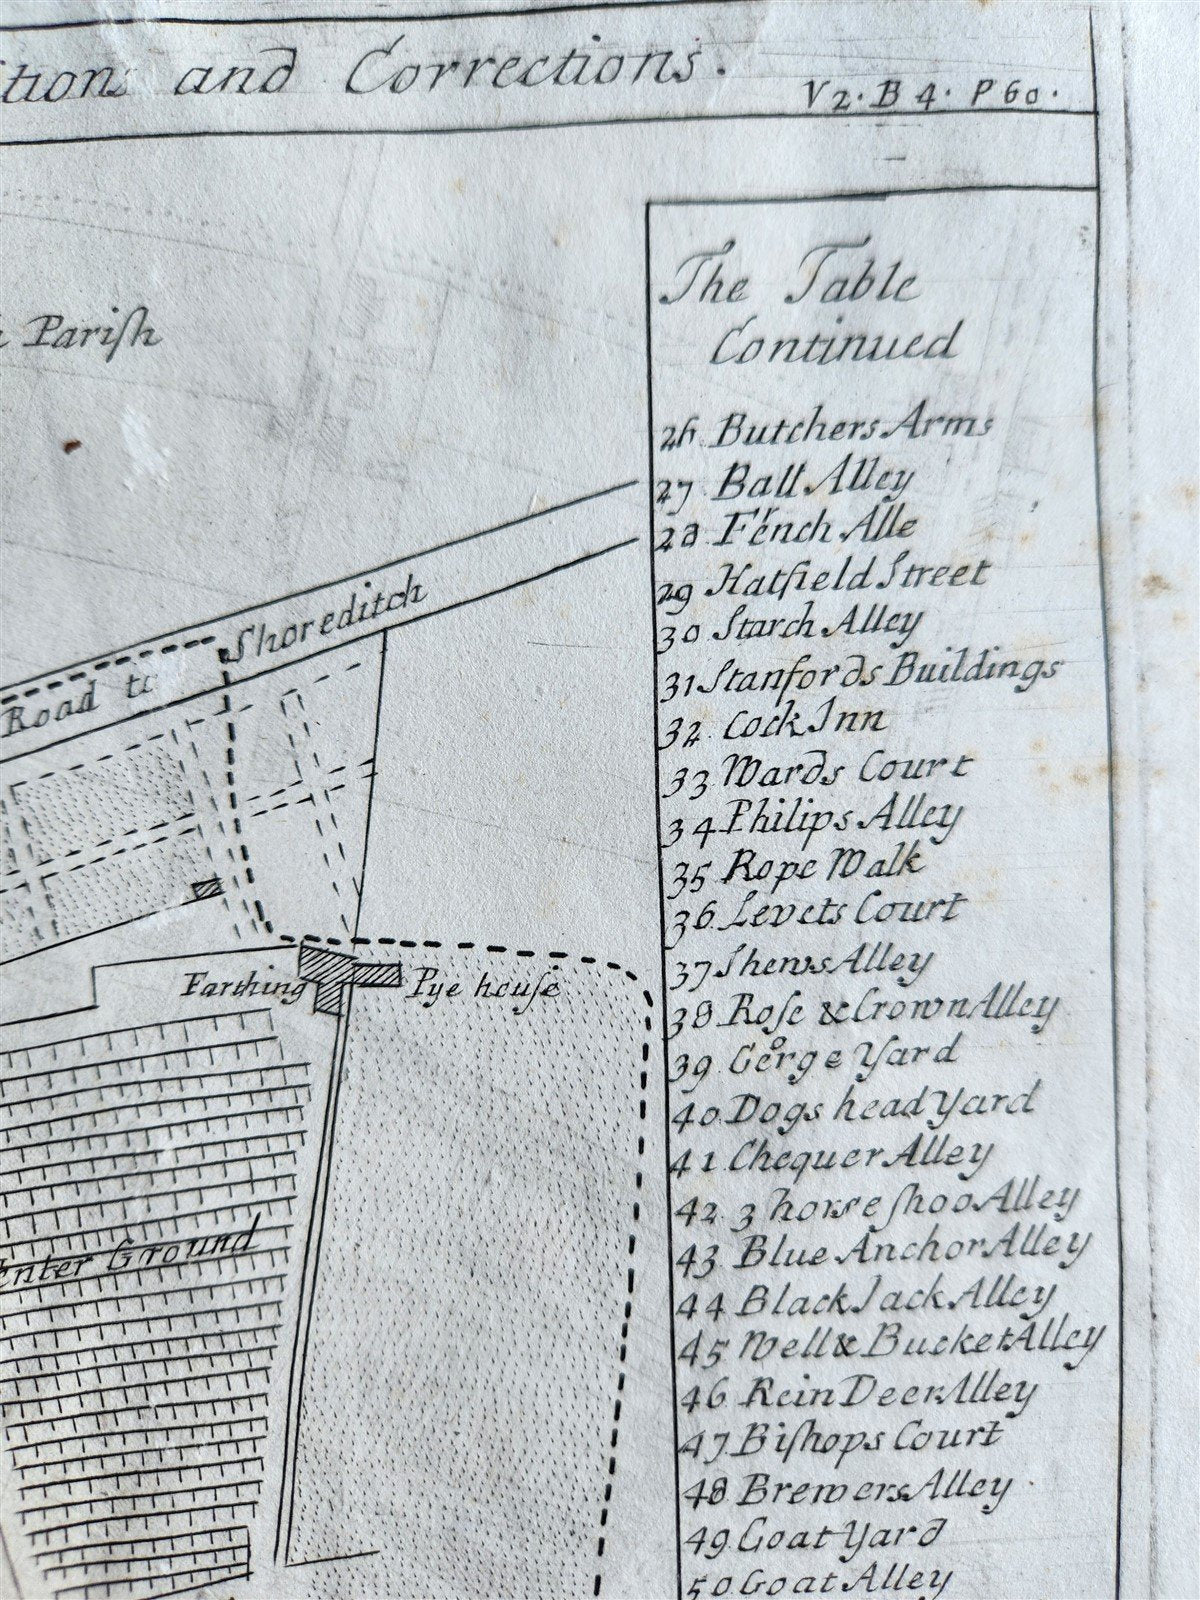 and Corrections.
V2. B 4. P 60.
Pariſh
Road to Shoreditch
Farthing Pye houſe
Ground
The Table
Continued
26 Butchers Arms
27 Ball Alley
28 Frénch Alle
29 Hatfield Street
30 Starch Alley
31 Stanfords Buildings
32 Cock Inn
33 Wards Court
34 Philips Alley
35 Rope Walk
36 Levets Court
37 Shews Alley
38 Roſe & Crown Alley
39 Goerge Yard
40 Dogs head Yard
41 Chequer Alley
42 3 horse ſhoo Alley
43 Blue Anchor Alley
44 Black Jack Alley
45 Well & Bucket Alley
46 Rein Deer Alley
47 Biſhops Court
48 Brewers Alley
49 Goat Yard
50 Goat Alley